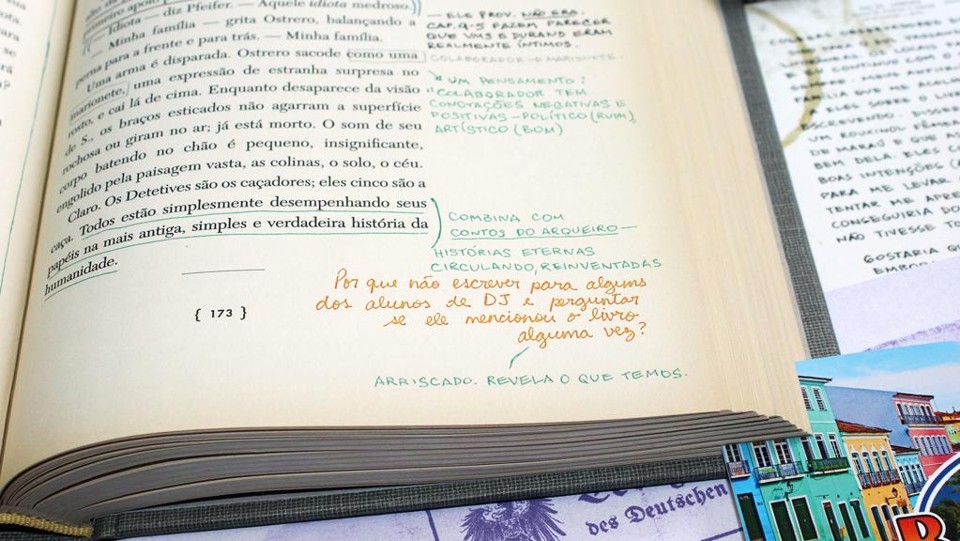 meiro apoio
— Idiota — diz Pfeifer. — Aquele idiota medroso.
— Minha família — grita Ostrero, balançando a
perna para a frente e para trás. — Minha família.
Uma arma é disparada. Ostrero sacode como uma
marionete, uma expressão de estranha surpresa no
rosto, e cai lá de cima. Enquanto desaparece da visão
de S., os braços esticados não agarram a superfície
rochosa ou giram no ar; já está morto. O som de seu
corpo batendo no chão é pequeno, insignificante,
engolido pela paisagem vasta, as colinas, o solo, o céu.
Claro. Os Detetives são os caçadores; eles cinco são a
caça. Todos estão simplesmente desempenhando seus
papéis na mais antiga, simples e verdadeira história da
humanidade.
{ 173 }
— ELE PROV. NÃO ERA.
CAP. 9-5 FAZEM PARECER
QUE VMS E DURAND ERAM
REALMENTE ÍNTIMOS.
COLABORADOR → MARIONETE.
UM PENSAMENTO:
"COLABORADOR TEM
CONOTAÇÕES NEGATIVAS E
POSITIVAS – POLÍTICO (RUIM),
ARTÍSTICO (BOM)
COMBINA COM
CONTOS DO ARQUEIRO —
HISTÓRIAS ETERNAS
CIRCULANDO, REINVENTADAS
Por que não escrever para alguns
dos alunos de DJ e perguntar
se ele mencionou o livro
alguma vez?
ARRISCADO. REVELA O QUE TEMOS.
ESCREVENDO.
UM ROUXINOL
DE MARAÚ E QUE
BEM DELA. ELES
BOAS INTENÇÕES
PARA ME LEVAR
TENTAR ME
CONSEGUIRIA DO
NÃO TIVESSE
GOSTARIA
des Deutschen